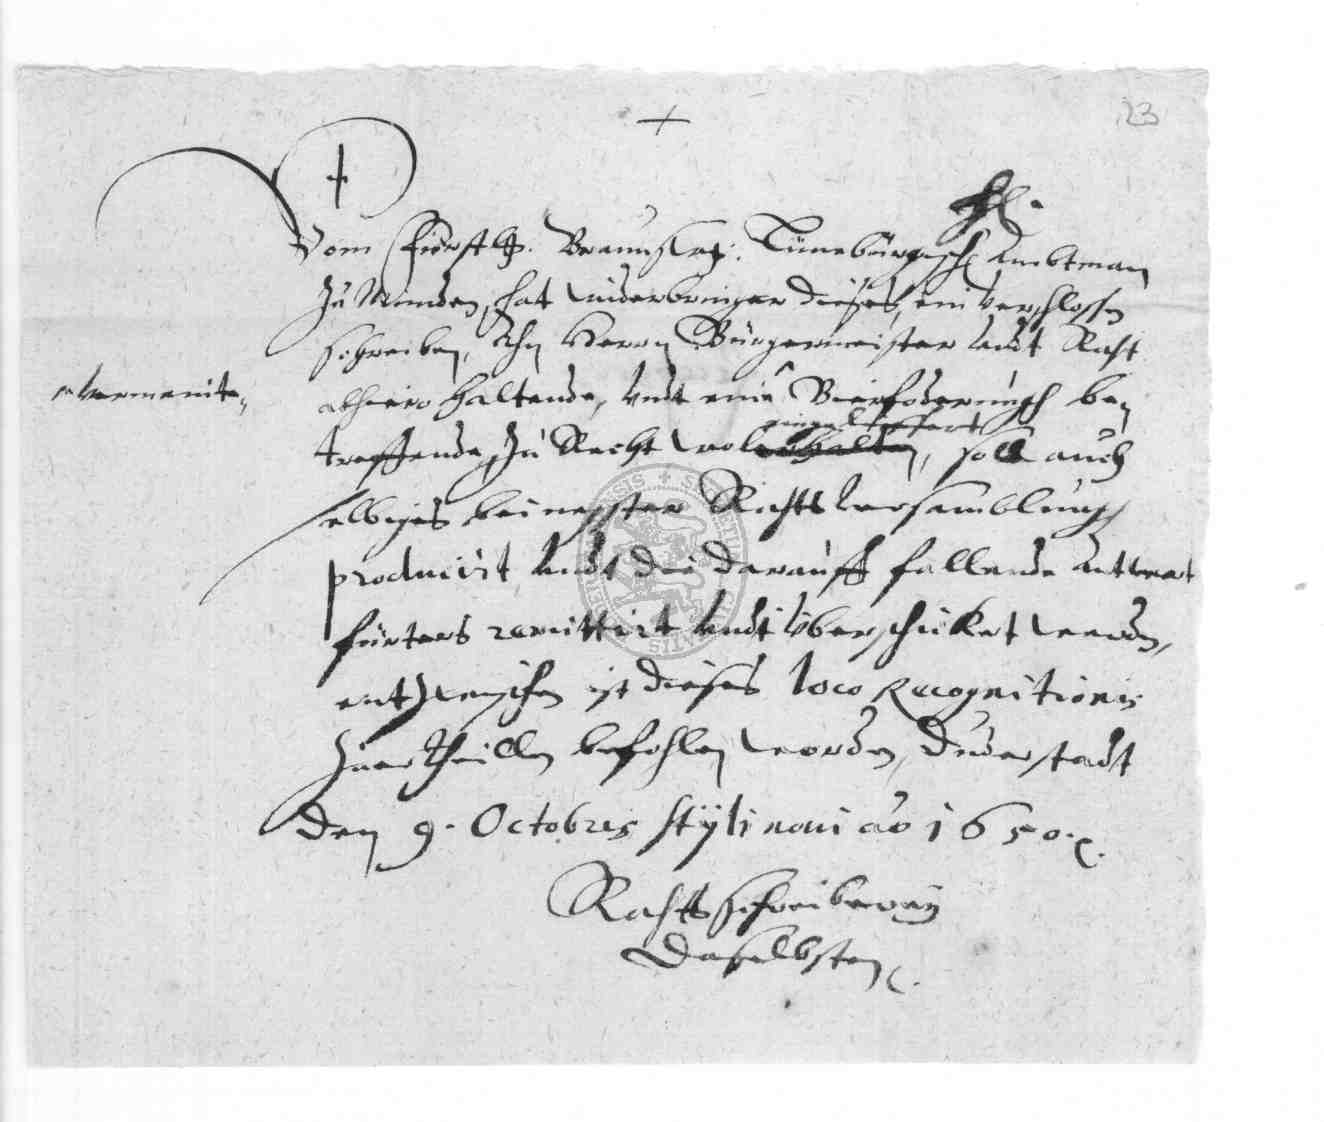 23
H.
Vom Fürstl. Braunschw: Lüneburgisch Ambtman
zu Münden, hat widerbringer dieses, ein verschlossen
schreiben, Ahn Herrn Bürgermeister undt Raht
vermeinte
alhiero haltende, undt eine Bierfoderungh be-
eingeliefert
treffende, zu Recht woll, soll auch
selbiges bei negster Rahts versamblungh
producirt undt die darauff fallende antwort
fürters remittirt undt überschicket werden,
entzwischen ist dieses loco Recognitionis
zuertheillen befohlen worden, Duderstadt
den 9. Octobris styli novi ao 1650.
Rahtsschreiberey
Daselbsten.